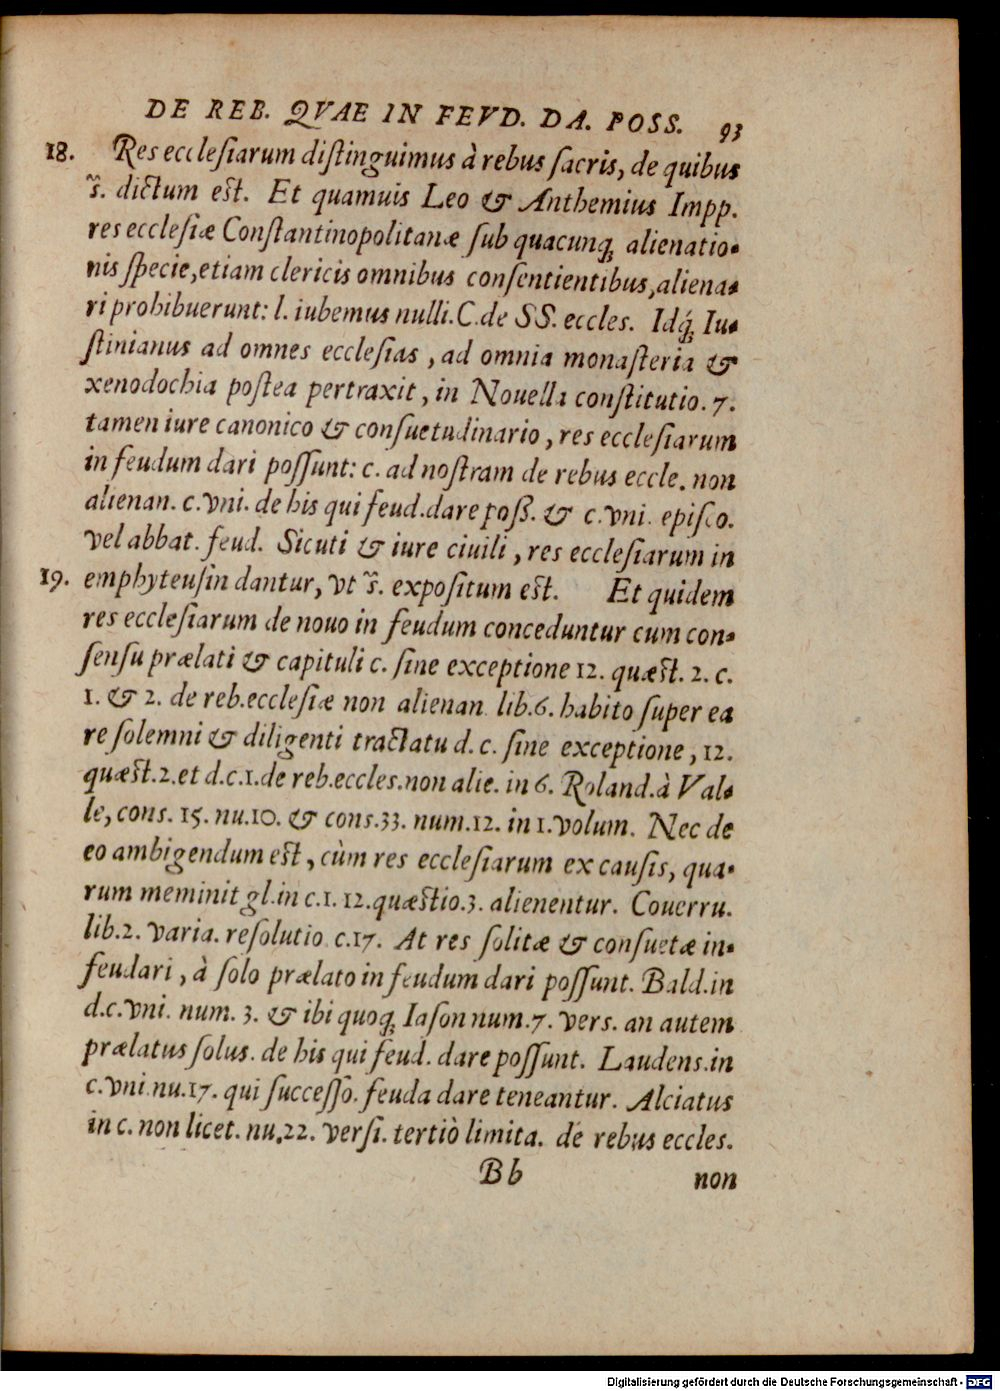 DE REB. QVAE IN FEVD. DA. POSS. 93
18. Res ecclesiarum distinguimus à rebus sacris, de quibus
s̃. dictum est. Et quamuis Leo & Anthemius Impp.
res ecclesiæ Constantinopolitanæ sub quacunq; alienatio-
nis specie, etiam clericis omnibus consentientibus, aliena-
ri prohibuerunt: l. iubemus nulli. C. de SS. eccles. Idq́; Iu-
stinianus ad omnes ecclesias, ad omnia monasteria &
xenodochia postea pertraxit, in Nouella constitutio. 7.
tamen iure canonico & consuetudinario, res ecclesiarum
in feudum dari possunt: c. ad nostram de rebus eccle. non
alienan. c. vni. de his qui feud. dare poß. & c. vni. episco.
vel abbat. feud. Sicuti & iure ciuili, res ecclesiarum in
19. emphyteusin dantur, vt s̃. expositum est. Et quidem
res ecclesiarum de nouo in feudum conceduntur cum con-
sensu prælati & capituli c. sine exceptione 12. quæst. 2. c.
1. & 2. de reb. ecclesiæ non alienan. lib. 6. habito super ea
re solemni & diligenti tractatu d. c. sine exceptione, 12.
quæst. 2. et d. c. 1. de reb. eccles. non alie. in 6. Roland. à Val-
le, cons. 15. nu. 10. & cons. 33. num. 12. in 1. volum. Nec de
eo ambigendum est, cùm res ecclesiarum ex causis, qua-
rum meminit gl. in c. 1. 12. quæstio. 3. alienentur. Couerru.
lib. 2. varia. resolutio c. 17. At res solitæ & consuetæ in-
feudari, à solo prælato in feudum dari possunt. Bald. in
d. c. vni. num. 3. & ibi quoq; Iason num. 7. vers. an autem
prælatus solus. de his qui feud. dare possunt. Laudens. in
c. vni. nu. 17. qui successo. feuda dare teneantur. Alciatus
in c. non licet. nu. 22. versi. tertiò limita. de rebus eccles.
Bb non
Digitalisierung gefördert durch die Deutsche Forschungsgemeinschaft - DFG